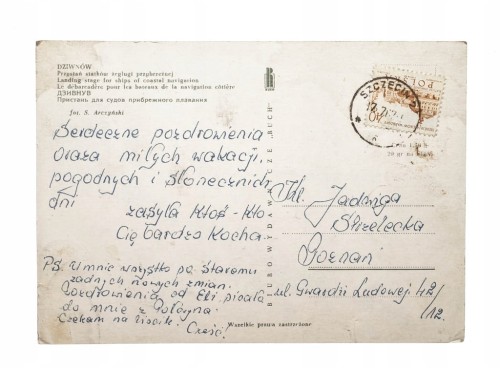 DZIWNÓW
Przystań statków żeglugi przybrzeżnej
Landing stage for ships of coastal navigation
Le débarcadère pour les bateaux de la navigation côtière
ДЗИВНУВ
Пристань для судов прибрежного плавания
fot. S. Arczyński
Serdeczne pozdrowienia
oraz miłych wakacji,
pogodnych i słonecznych
dni
zasyła Ktoś - Kto
Cię bardzo Kocha.
PS. U mnie wszystko po staremu
żadnych nowych zmian.
Pozdrowienia od Eli pisała
do mnie z
Czekam na
Cześć!
BIURO WYDAWNICZE „RUCH"
SZCZECIN
POLSKA
Jadwiga
Strzelecka
Poznań
ul. Gwardii Ludowej 42/
12.
Wszelkie prawa zastrzeżone